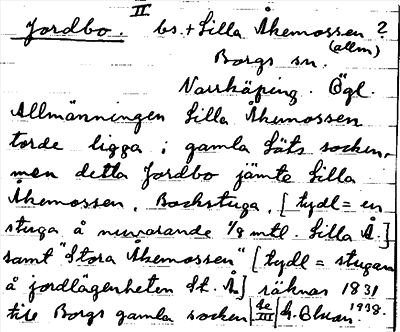 Jordbo. II bs. + Lilla Åkemossen ?
(allm)
Borgs sn.
Norrköping. Ögl.
Allmänningen Lilla Åkemossen
torde ligga i gamla Låts socken,
men detta Jordbo jämte Lilla
Åkemossen, Backstuga, [tydl = en
stuga å nuvarande 1/8 mtl. Lilla Å.]
samt "Stora Åkemossen" [tydl = stugan
å jordlägenheten St. Å] räknas 1831
till Borgs gamla socken
1938.